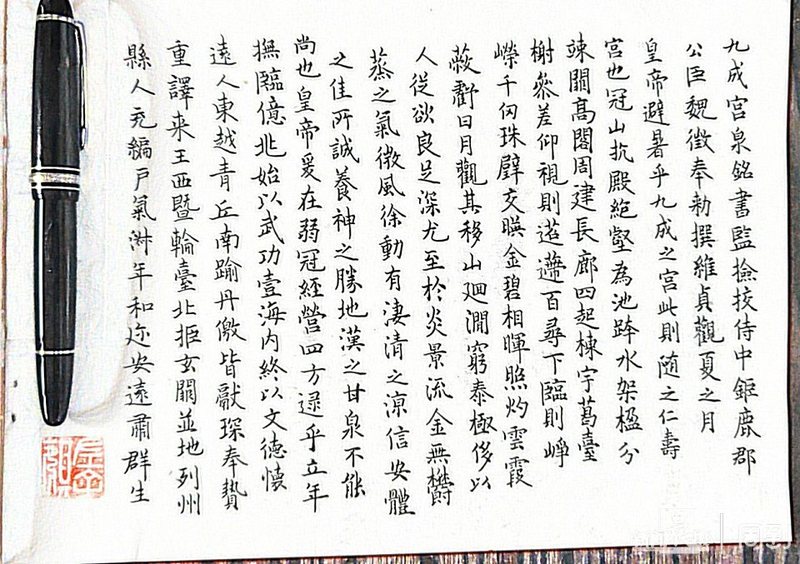 九成宮泉銘書監撿挍侍中鉅鹿郡
公臣魏徵奉勅撰維貞觀夏之月
皇帝避暑乎九成之宮此則随之仁壽
宮也冠山抗殿絶壑為池跨水架楹分
竦闕髙閣周建長廊四起棟宇葛臺
榭叅差仰視則迢遰百尋下臨則崢
嶸千仞珠壁交暎金碧相暉照灼雲霞
蔽虧日月觀其移山廻澗窮泰極侈以
人従欲良足深尤至於炎景流金無欝
蒸之氣微風徐動有凄清之凉信安體
之佳所誠養神之勝地漢之甘泉不能
尚也皇帝爰在弱冠經營四方逯乎立年
撫臨億兆始以武功壹海内終以文德懐
遠人東越青丘南踰丹儌皆獻琛奉贄
重譯来王西曁輪臺北拒玄闕並地列州
縣人充編戸氣淋年和迩安遠肅群生